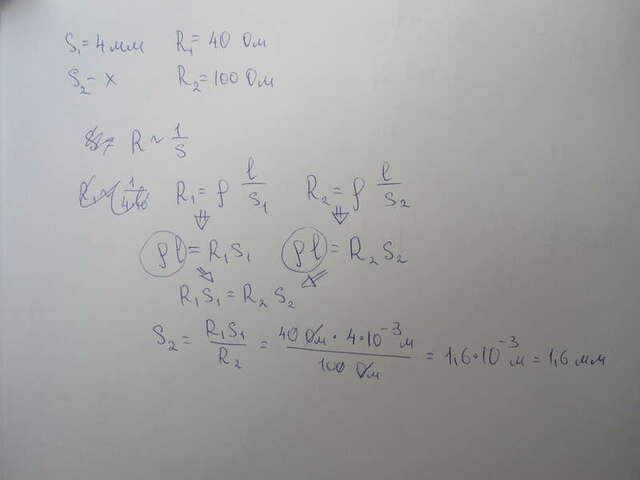 S₁ = 4 мм R₁ = 40 Ом
S₂ – x R₂ = 100 Ом
R ~ 1/S
R₁ = ρ l/S₁ R₂ = ρ l/S₂
ρl = R₁S₁ ρl = R₂S₂
R₁S₁ = R₂S₂
S₂ = R₁S₁/R₂ = 40 Ом · 4·10⁻³ м / 100 Ом = 1,6·10⁻³ м = 1,6 мм